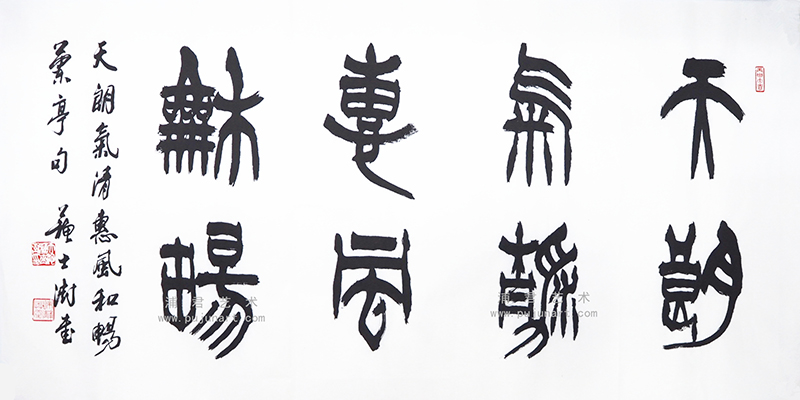 天朗
氣清
惠風
和暢
天朗氣清惠風和暢
蘭亭句 蘇士澍書
浦君艺术
www.pujunart.com
浦君艺术
www.pujunart.com